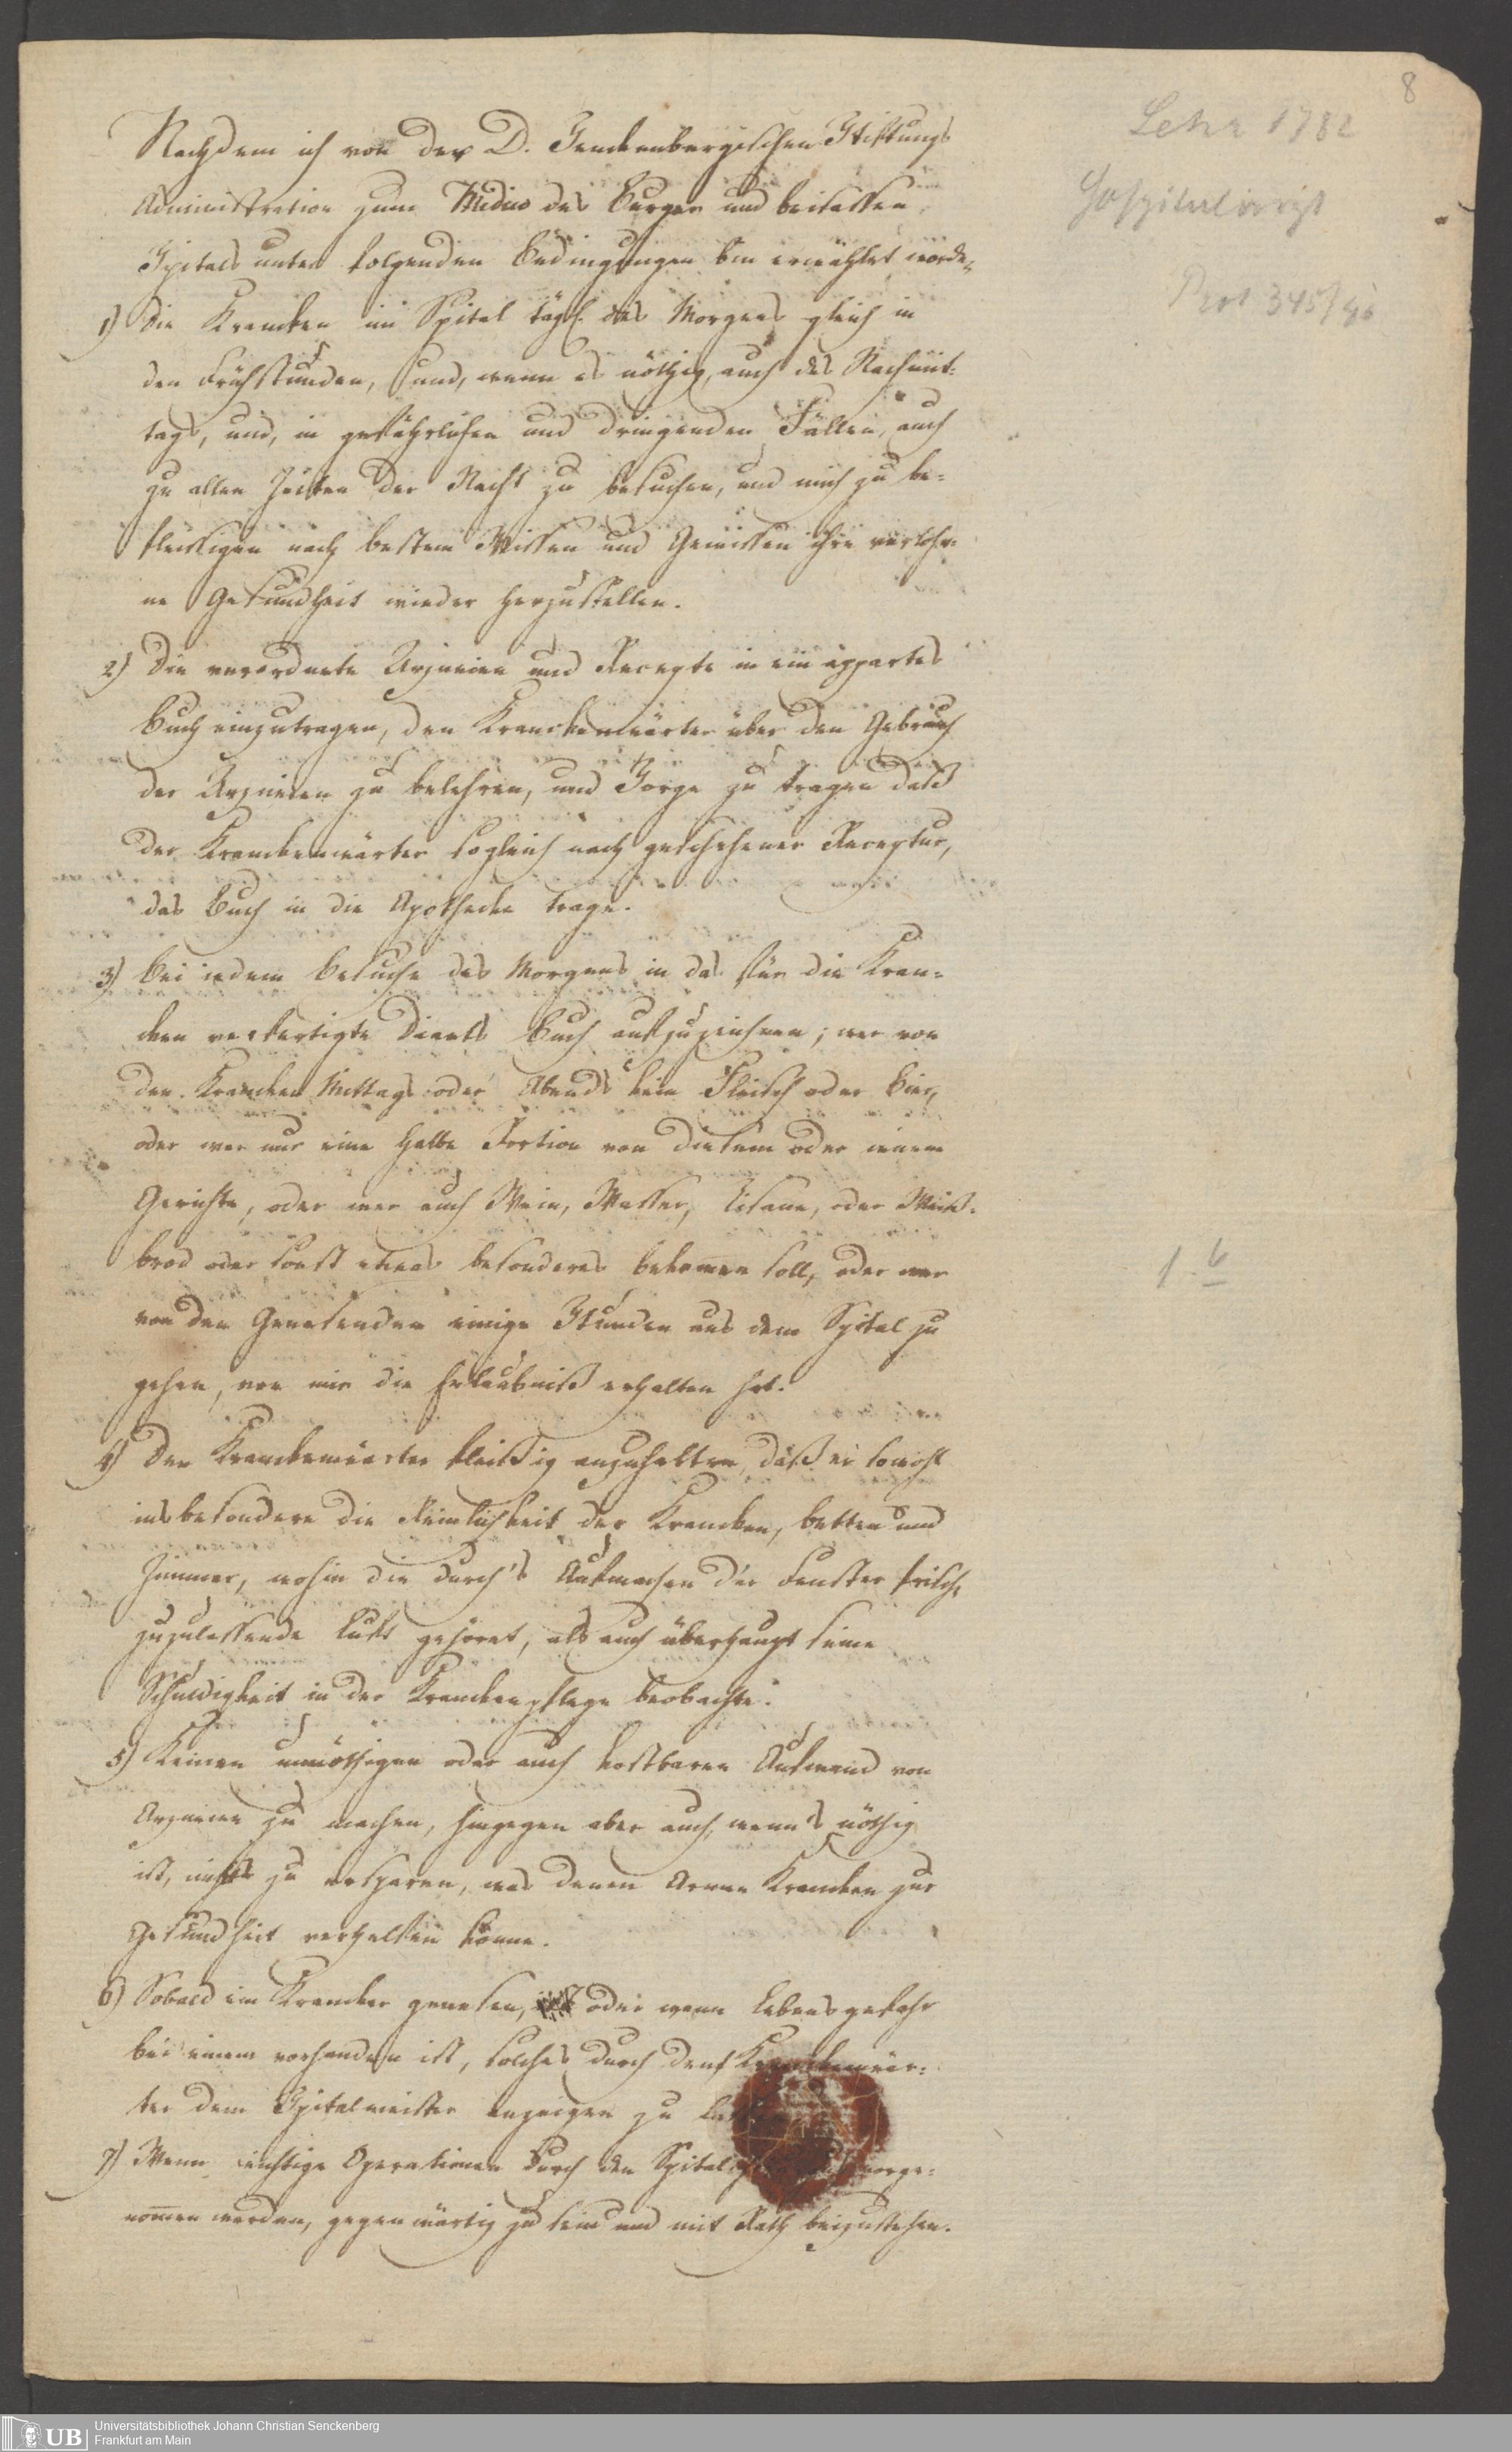 8
Lehr 1782
Hospitalarzt
Prot 345/46
Nachdem ich von der D. Senckenbergischen Stiftungs
Administration zum Medico des Burger und beisassen
Spitals unter folgenden Bedingungen bin erwählet worden,
1) Die Krancken im Spital tägl. des Morgens gleich in
den Frühstunden, und, wenn es nöthig, auch des Nachmit-
tags, und, in gefährlichen und dringenden Fällen, auch
zu allen Zeiten der Nacht zu besuchen, und mich zu be-
fleissigen nach bestem Wissen und Gewissen ihre verlohr-
ne Gesundheit wieder herzustellen.
2) Die verordnete Arzneien und Recepte in ein appartes
Buch einzutragen, den Kranckenwärter über den Gebrauch
der Arzneien zu belehren, und Sorge zu tragen daß
der Kranckenwärter sogleich nach geschehener Receptur,
das Buch in die Apothecke trage.
3) Bei iedem Besuche des Morgens in das für die Kran-
cken verfertigte Diaets Buch aufzuzeichnen; wer von
den Krancken Mittags oder Abends kein Fleisch oder Bier,
oder wer nur eine halbe Portion von diesem oder ienem
Gerichte, oder wer auch Wein, Wasser, Tisane, oder Weiß-
brod oder sonst etwas besonderes bekom̅en soll, oder wer
von den Genesenden einige Stunden aus dem Spital zu
gehen, von mir die Erlaubniß erhalten hat.
4) Den Kranckenwärter fleißig anzuhalten, daß er sowohl
insbesondere die Reinlichkeit der Krancken, betten und
Zimmer, wohin die durch's Aufmachen der Fenster frische
zuzulassende Luft gehöret, als auch überhaupt seine
Schuldigkeit in der Kranckenpflege beobachte.
5) Keinen unnöthigen oder auch kostbaren Aufwand von
Arzneien zu machen, hingegen aber auch, wenn's nöthig
ist, nichts zu ersparen, was denen Armen Krancken zur
Gesundheit verhelfen könne.
6) Sobald ein Krancker genesen, oder wenn Lebensgefahr
bei einem vorhanden ist, solches durch den Kranckenwär-
ter dem Spitalmeister anzeigen zu
7) Wenn wichtige Operationen durch den vorge-
nom̅en werden, gegenwärtig zu sein und mit Rath beizustehen.
UB
Universitätsbibliothek Johann Christian Senckenberg
Frankfurt am Main